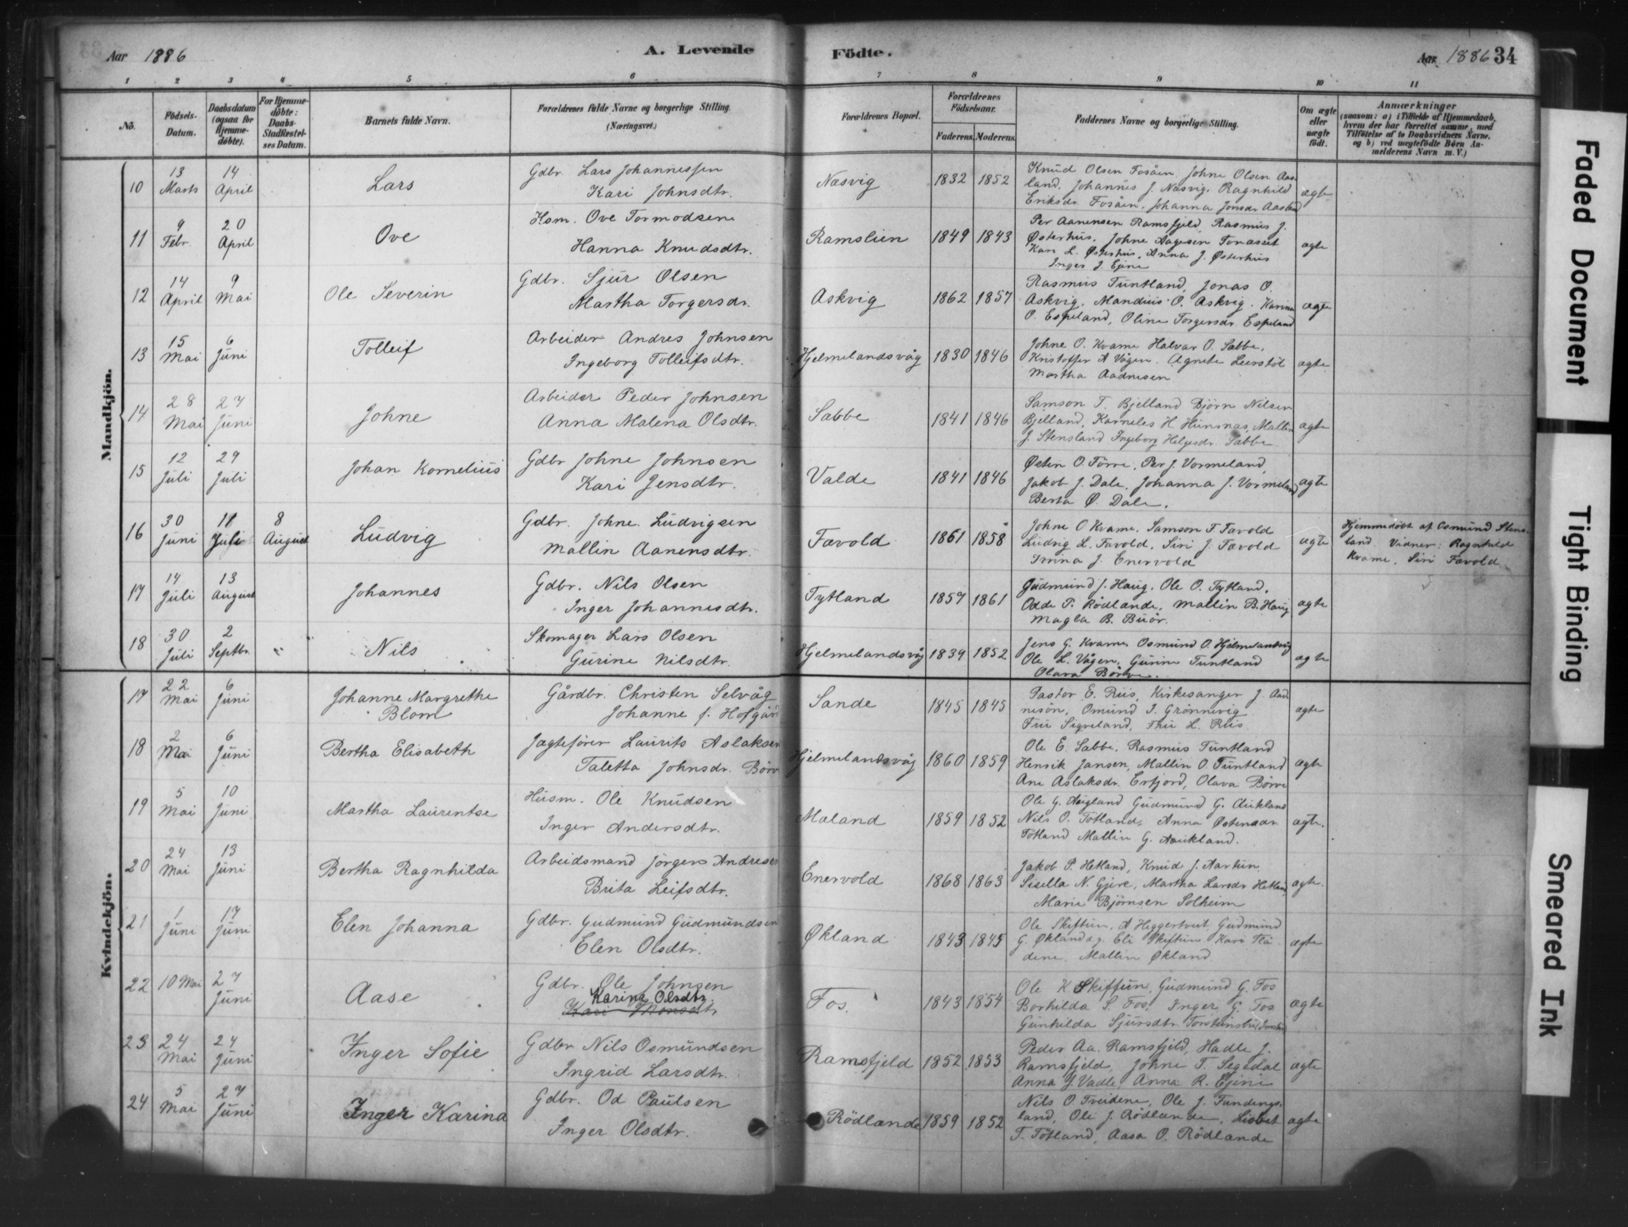 Aar 1886 A. Levende Födte. Aar 1886 34
1 2 3 4 5 6 7 8 9 10 11
No. Födsels-Datum. Daabsdatum (ogsaa for Hjemme-döbte). For Hjemme-döbte: Daabs-Stadfæstel-ses Datum. Barnets fulde Navn. Forældrenes fulde Navne og borgerlige Stilling. (Næringsvei) Forældrenes Bopæl. Forældrenes Födselsaar. Faderens. Moderens. Faddernes Navne og borgerlige Stilling. Om ægte eller uægte födt. Anmærkninger (saasom: a) i Tilfælde af Hjemmedaab, hvem der har forrettet samme, med Tilföielse af to Daabsvidners Navne, og b) ved uægtefödte Börn An-melderens Navn m. V.)
Mandkjön.
10 13 Marts 14 April Lars Gdbr. Lars Johannessen
Kari Johnsdtr. Næsvig 1832 1852 Knud Olsen Fosåen Johne Olsen Aas-
land, Johannes J. Næsvig. Ragnhild
Eriksdr Fosåen, Johanna Jonsdr Aasland ægte
11 9 Febr. 20 April Ove Hsm. Ove Tormodsen
Hanna Knudsdtr. Ramslien 1849 1843 Per Aanensen Ramsfjeld, Rasmus J.
Østerhus, Johne Aagesen
Kari L. Østerhus, Anna J. Østerhus
Inger J. Ejene ægte
12 14 April 9 Mai Ole Severin Gdbr. Sjur Olsen
Martha Torgersdr. Askvig 1862 1857 Rasmus Tuntland, Jonas O.
Askvig, Mandius O. Askvig. Karina
O. Espeland, Oline Torgersdr Espeland ægte
13 15 Mai 6 Juni Tolleif Arbeider Andres Johnsen
Ingeborg Tolleifsdtr. Hjelmelandsvåg 1830 1846 Johne O. Kvame Halvar O. Sabbe,
Kristoffer A Vågen. Agnete
Martha Aadnesen ægte
14 28 Mai 27 Juni Johne Arbeider Peder Johnsen
Anna Malena Olsdtr. Sabbe 1841 1846 Samson T. Bjelland Björn Nilsen
Bjelland, Karneles H Hunsnas, Mallin
J Stensland Ingeborg Helgesdr Sabbe ægte
15 12 Juli 29 Juli Johan Kornelius Gdbr Johne Johnsen
Kari Jensdtr. Valde 1841 1846 Östen O Törre, Per J. Vormeland,
Jakob J. Dale, Johanna J. Vormeland
Berta Ø Dale. ægte
16 30 Juni 11 Juli 8 August Ludvig Gdbr. Johne Ludvigsen
Mallin Aanensdtr. Favold 1861 1858 Johne O Kvame, Samson T Favold
Ludvig L. Favold, Siri J. Favold
J Enervold ægte Hjemmedöbt af Osmund Stens-
land Vidner: Ragnhild
Kvame, Siri Favold.
17 14 Juli 13 August Johannes Gdbr. Nils Olsen
Inger Johannesdtr. Tytland 1857 1861 Gudmund J. Haug, Ole O. Tytland,
Odde P. Rödlande, Mallin B. Haug
Magla B. Buör. ægte
18 30 Juli 2 Septbr. " Nils Skomager Lars Olsen
Gurine Nilsdtr. Hjelmelandsvåg 1834 1852 Jens G. Kvame Osmund O. Hjelmelandsvåg
Ole L. Vågen, Gurine Tuntland
Olava Börve. ægte
Kvindekjön.
17 22 Mai 6 Juni Johanne Margrethe
Blom Gårdbr. Christen Selvåg
Johanne f. Hofgård Sande 1845 1845 Pastor E. Riis, Kirkesanger J Aad-
nesön, Omund J. Grönnevig
Frü Sigveland, Frü L. Riis ægte
18 2 Mai 6 Juni Bertha Elisabeth Jagtefører Laurits Aslaksen
Taletta Johnsdr. Börve Hjelmelandsvåg 1860 1859 Ole E. Sabbe, Rasmus Tuntland
Henrik Jansen, Mallin O Tuntland
Ane Aslaksdr. Erfjord, Olava Börve ægte
19 5 Mai 10 Juni Martha Laurentse Husm. Ole Knudsen
Inger Andersdtr. Maland 1859 1852 Ole G. Haugland Gudmund G. Aukland
Nils O. Totland, Anna Östensdr
Totland Mallin G. Aaukland. ægte.
20 24 Mai 13 Juni Bertha Ragnhilda Arbeidsmand Jörgen Andresen
Brita Leifsdtr. Enervold 1868 1863 Jakob P. Hetland, Knud J.
Sisella N. Gjere, Martha Larsdr Hetland
Marie Björnsen Solheim ægte.
21 1 Juni 17 Juni Elen Johanna Gdbr. Gudmund Gudmundsen
Elen Olsdtr. Økland 1843 1845 Ole Skiftun, A Heggertveit Gudmund
G. Økland, Eli Skiftun Kari
dene, Mallin Økland ægte
22 10 Mai 27 Juni Aase Gdbr. Ole Johnsen
Karina Olsdtr. Fos. 1843 1854 Ole K Skiftun, Gudmund G. Fos
Borhilda S. Fos, Inger G. Fos
Gunhilda Sjursdtr ægte
23 24 Mai 24 Juni Inger Sofie Gdbr Nils Osmundsen
Ingrid Larsdtr. Ramsfjeld 1852 1853 Peder Aa. Ramsfjeld, Hadle J.
Ramsfjeld, Johne T. Segedal
Anna J Vadle Anna R. Ejene ægte
24 5 Mai 27 Juni Inger Karina Gdbr. Od Paulsen
Inger Olsdtr. Rödlande 1859 1852 Nils O Treidene, Ole J. Fundings-
land, Ole J. Rödlande, Lisbet
T. Totland, Aasa O. Rödlande ægte
Faded Document
Tight Binding
Smeared Ink